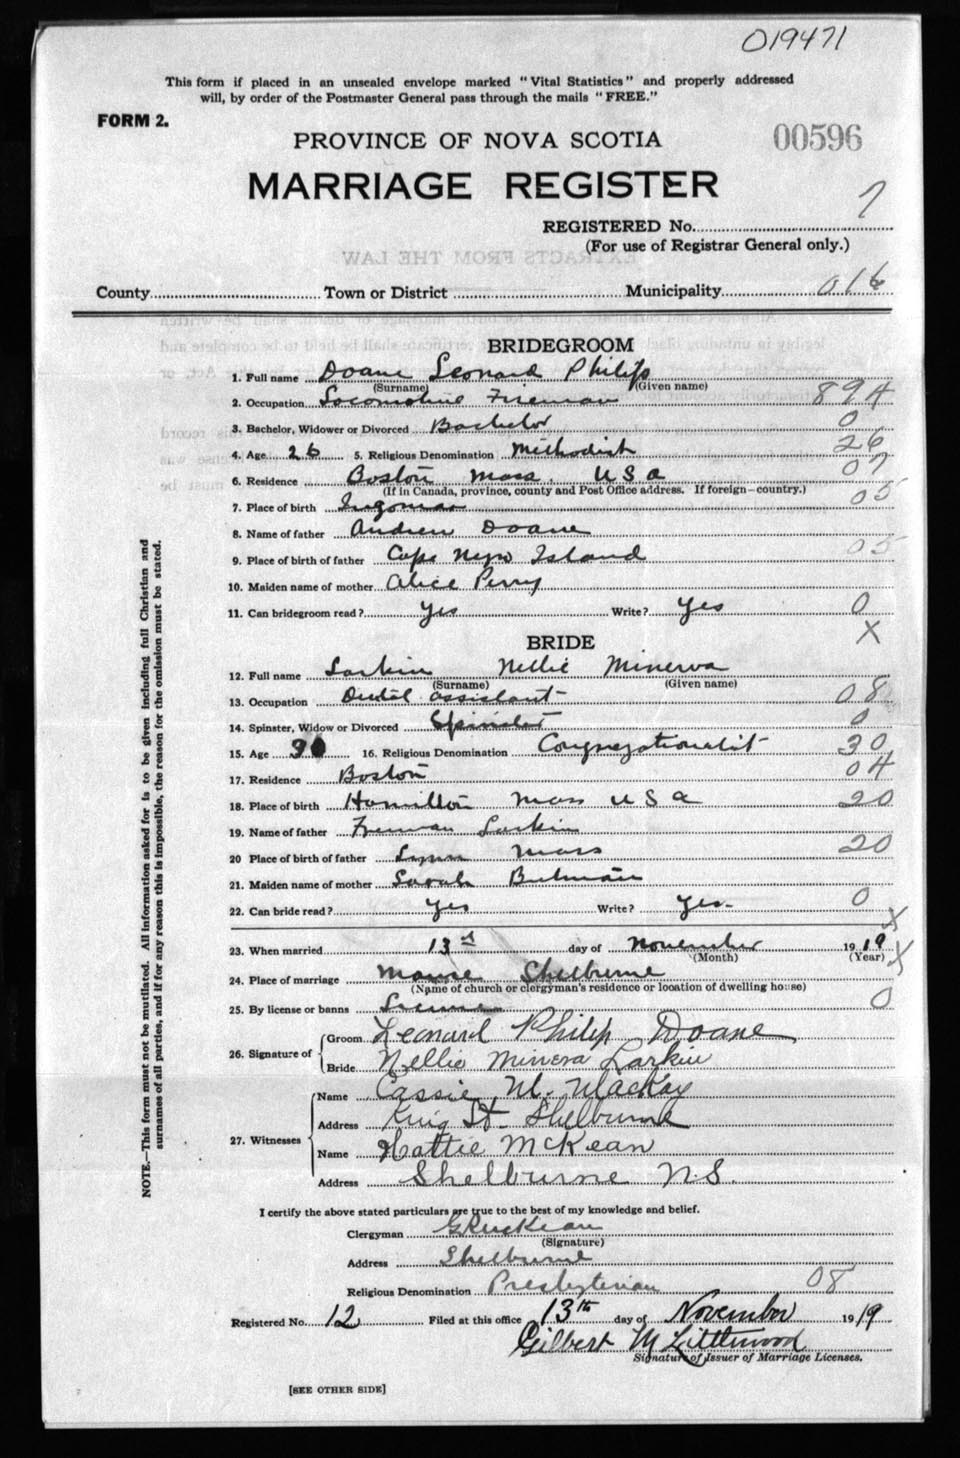 019471
This form if placed in an unsealed envelope marked "Vital Statistics" and properly addressed
will, by order of the Postmaster General pass through the mails "FREE."
FORM 2.
PROVINCE OF NOVA SCOTIA 00596
MARRIAGE REGISTER
REGISTERED No. 7
(For use of Registrar General only.)
EXTRACTS FROM THE LAW
County Town or District Municipality 016
BRIDEGROOM
1. Full name Doane Leonard Philip
(Surname) (Given name)
2. Occupation Locomotive Fireman 894
3. Bachelor, Widower or Divorced Bachelor 0
4. Age 26 5. Religious Denomination Methodist 26
6. Residence Boston Mass. USA 07
(If in Canada, province, county and Post Office address. If foreign—country.)
7. Place of birth Ingomar 05
8. Name of father Andrew Doane
9. Place of birth of father Cape Negro Island 05
10. Maiden name of mother Alice Perry
11. Can bridegroom read? Yes Write? Yes 0
X
BRIDE
12. Full name Larkin Nellie Minerva
(Surname) (Given name)
13. Occupation Dental assistant 08
14. Spinster, Widow or Divorced Spinster 0
15. Age 30 16. Religious Denomination Congregationalist 30
17. Residence Boston 04
18. Place of birth Hamilton Mass USA 20
19. Name of father Freeman Larkin
20 Place of birth of father Lynn Mass 20
21. Maiden name of mother Sarah
22. Can bride read? Yes Write? Yes. 0
X
23. When married 13 day of November 1919 X
(Month) (Year)
24. Place of marriage Manse Shelburne
(Name of church or clergyman's residence or location of dwelling house)
25. By license or banns License 0
26. Signature of
Groom Leonard Philip Doane
Bride Nellie Minerva Larkin
27. Witnesses
Name Cassie M. MacKay
Address King St. Shelburne
Name Hattie McKean
Address Shelburne N.S.
I certify the above stated particulars are true to the best of my knowledge and belief.
Clergyman
(Signature)
Address Shelburne
Religious Denomination Presbyterian 08
Registered No. 12 Filed at this office 13th day of November 1919
Gilbert M Littlewood
Signature of Issuer of Marriage Licenses.
[SEE OTHER SIDE]
NOTE.—This form must not be mutilated. All information asked for is to be given including full Christian and
surnames of all parties, and if for any reason this is impossible, the reason for the omission must be stated.